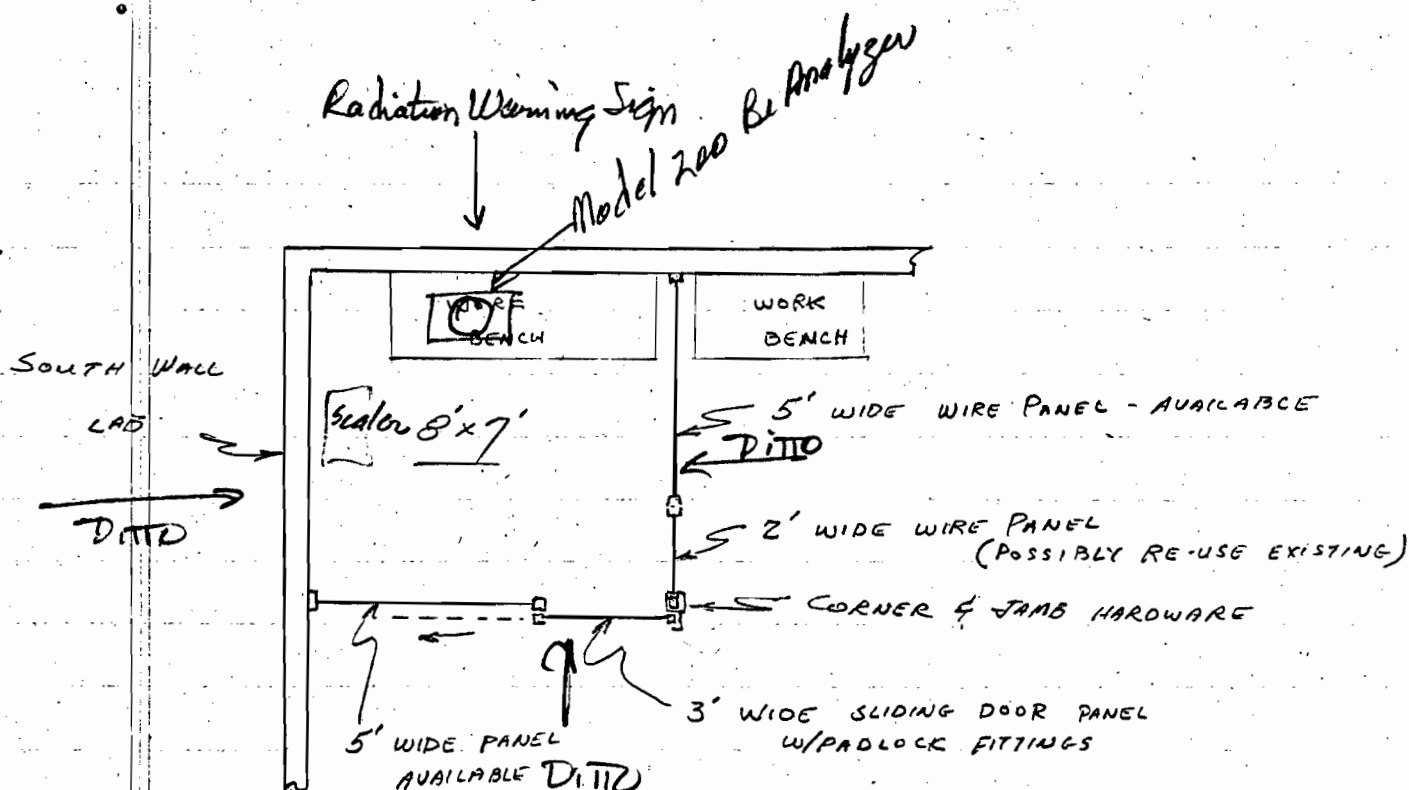 Radiation Warning Sign
Model 200 Be Analyzer
WORK
BENCH
WORK
BENCH
SOUTH WALL
LAB
Scaler 8' x 7'
5' WIDE WIRE PANEL - AVAILABLE
DITTO
DITTO
2' WIDE WIRE PANEL
(POSSIBLY RE-USE EXISTING)
CORNER & JAMB HARDWARE
3' WIDE SLIDING DOOR PANEL
W/PADLOCK FITTINGS
5' WIDE PANEL
AVAILABLE DITTO